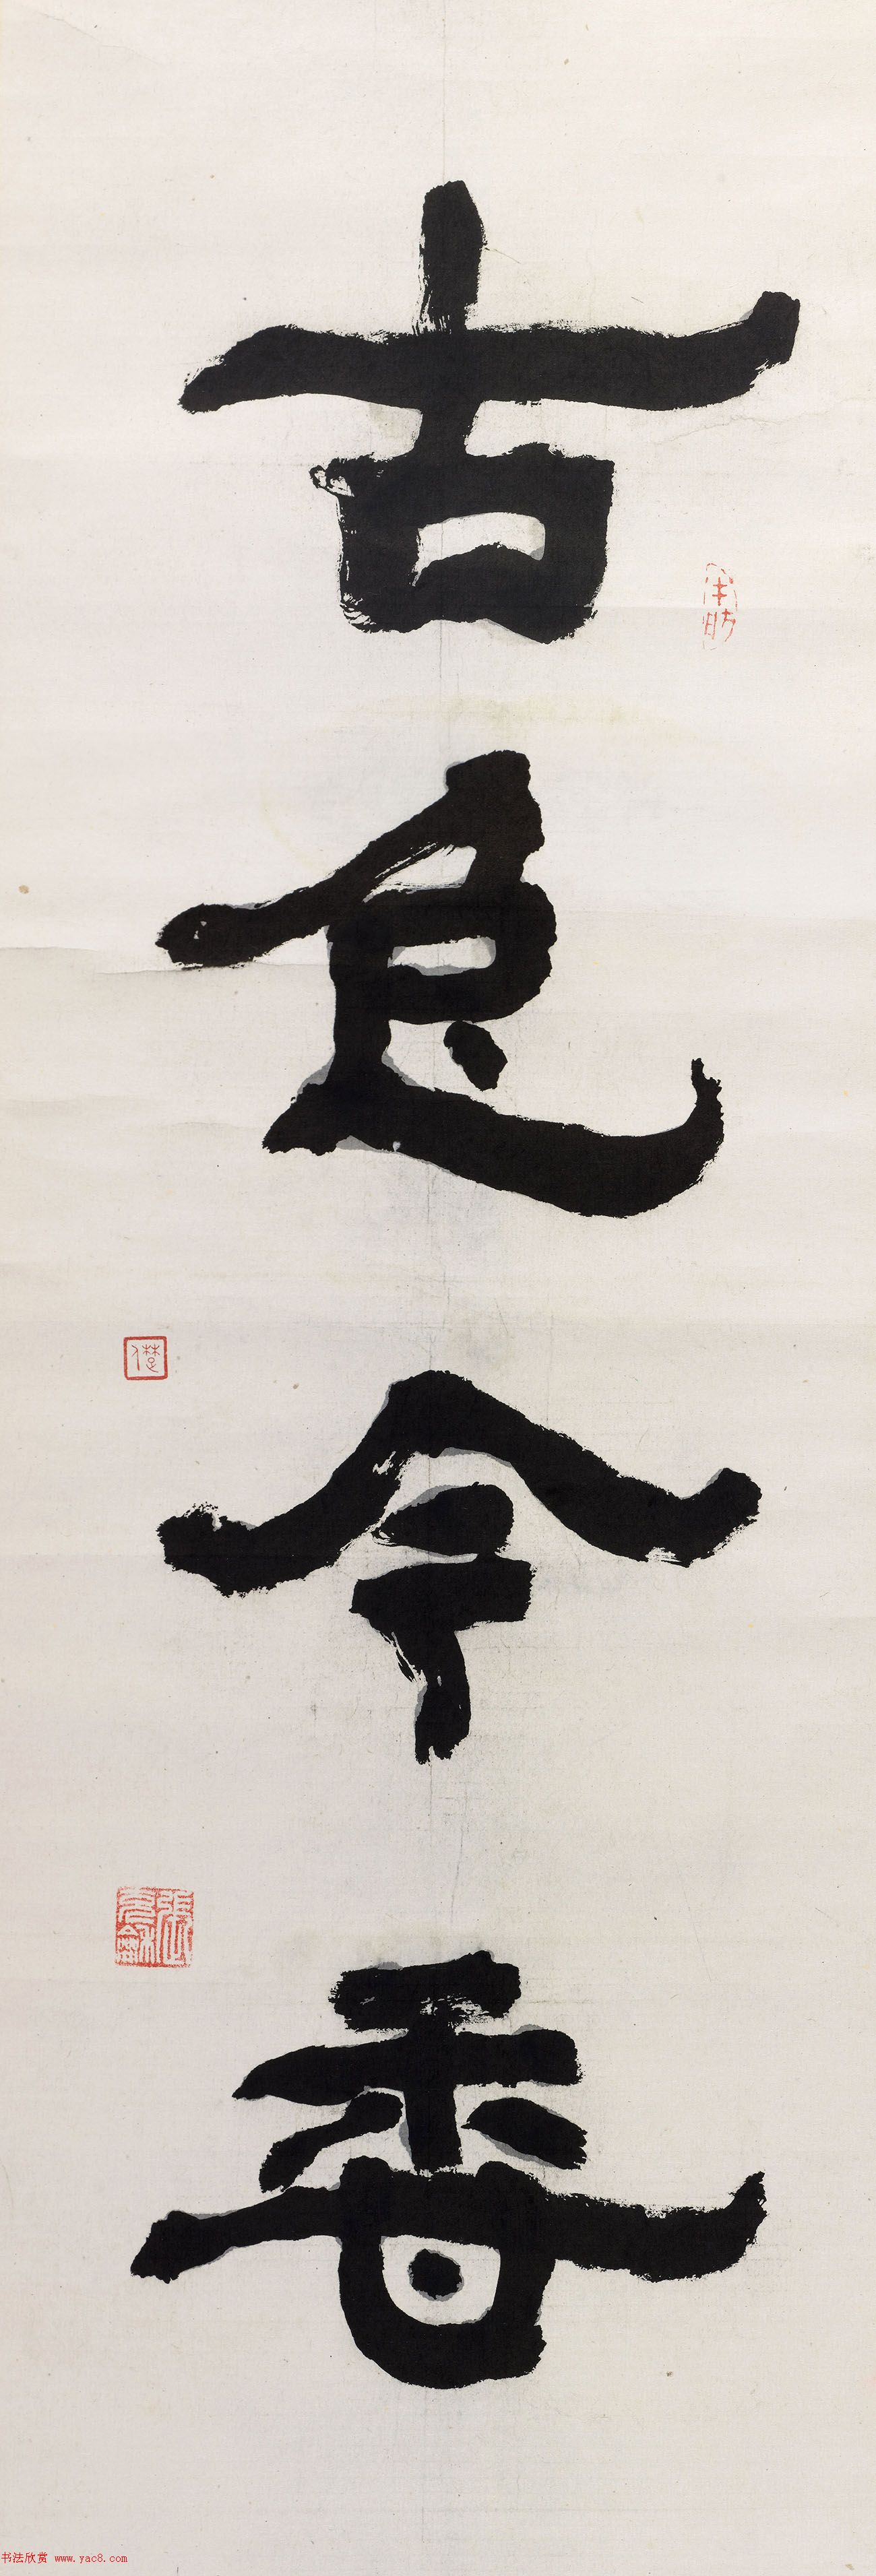 古色今香
书法欣赏 www.yac8.com